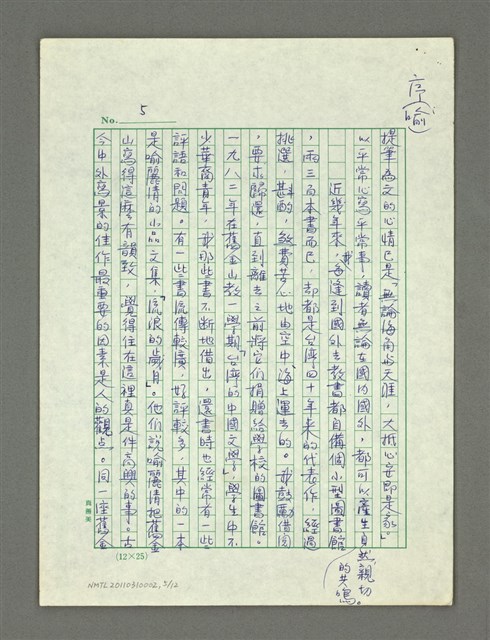 序(喻)
No. 5
提筆為文的心情已是「無論海角與天涯，大抵心安即是家。」
以平常心寫平常事，讀者無論在國內國外，都可以產生自然、親切的共鳴。
近幾年來，我每逢到國外去教書都自備個小型圖書館
，兩三百本書而已，却都是台湾四十年來的代表作，經過
挑選，斟酌，煞費苦心地由空中、海上運去的。我鼓勵借閱
，要求歸還，直到離去之前將它們捐贈給學校的圖書館。
一九八二年在舊金山教一學期「台湾的中國文學」，學生中不
少華裔青年，我那些書不断地借出，還書時也經常有一些
評語和問題。有一些書流傳較廣，好評較多，其中的一本
是喻麗清的小品文集「流浪的歲月」。他們說喻麗清把舊金
山寫得這麼有韻致，覺得住在這裡真是件高興的事。古
今中外寫景的佳作最重要的因素是人的觀点。同一座舊金
(12×25)
NMTL20110310002, 5/12